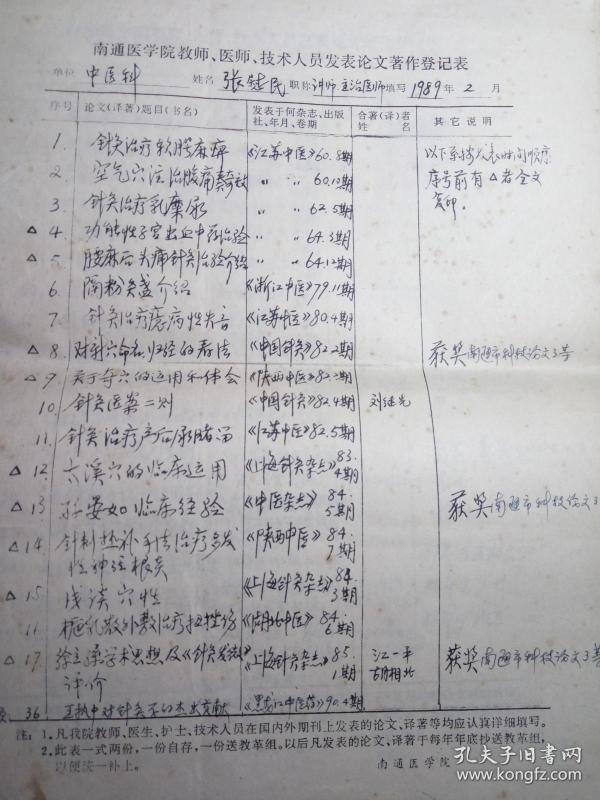 南通医学院教师、医师、技术人员发表论文著作登记表
单位 中医科 姓名 张 民 职称 讲师 主治医师 填写 1989年 2 月
序号 论文(译著)题目(书名) 发表于何杂志、出版社、年月、卷期 合著(译)者姓名 其它说明
1. 针灸治疗软腭麻痹 《江苏中医》60.8期 以下系按发表时间顺序
2. 空气穴注治腹痛 〃 〃 60.10期 序号前有△者全文
3. 针灸治疗乳糜尿 〃 〃 62.5期 复印。
△ 4. 功能性子宫出血中药治验 〃 〃 64.3期
△ 5. 腰麻后头痛针灸治验介绍 〃 〃 64.12期
6. 隔粉灸盏介绍 《浙江中医》79.11期
7. 针灸治疗癔病性失音 《江苏中医》80.4期
△ 8. 对 穴命名、归经的看法 《中国针灸》82.2期 获奖 南通市科技论文3等
△ 9. 关于 穴的运用和体会 《陕西中医》82.3期
10. 针灸医案二则 《中国针灸》82.4期 刘继光
11. 针灸治疗产后尿潴留 《江苏中医》82.5期
△ 12. 太溪穴的临床运用 《上海针灸杂志》83.4期
△ 13. 孙晏如临床经验 《中医杂志》84.5期 获奖 南通市科技论文3
△ 14. 针刺热补手法治疗多发性神经根炎 《陕西中医》84.7期
△ 15. 浅谈穴性 《上海针灸杂志》84.3期
16. 栀乳散外敷治疗扭挫伤 《湖北中医》84.6期
△ 17. 徐立 学术思想及《针灸 》评价 《上海针灸杂志》85.1期 江一平 胡相 获奖 南通市科技论文3等
36 王执中对针灸学的杰出贡献 《黑龙江中医药》90.4期
注: 1.凡我院教师、医生、护士、技术人员在国内外期刊上发表的论文、译著等均应认真详细填写。
2.此表一式两份,一份自存,一份送教革组。以后凡发表的论文、译著于每年年底抄送教革组,
以便汰一补上。
南通医学院
孔夫子旧书网
www.kongfz.com